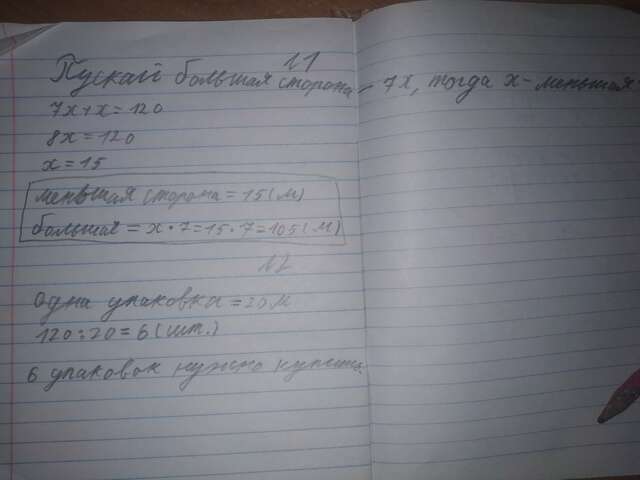 11
Пускай большая сторона - 7х, тогда х - меньшая
7х+х=120
8х=120
х=15
меньшая сторона = 15(м)
большая = х·7=15·7=105(м)
12
Одна упаковка = 20 м
120:20=6(шт.)
6 упаковок нужно купить.